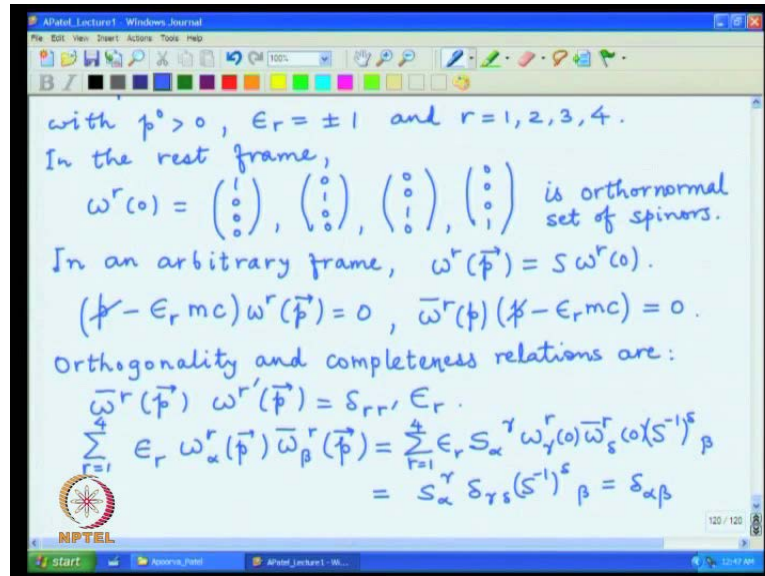 APatel_Lecture1 - Windows Journal
File Edit View Insert Actions Tools Help
100%
B I
with p⁰ > 0 , ϵᵣ = ± 1 and r = 1, 2, 3, 4 .
In the rest frame,
ωʳ(0) = (1 0 0 0), (0 1 0 0), (0 0 1 0), (0 0 0 1) is orthornormal set of spinors.
In an arbitrary frame, ωʳ(p⃗) = S ωʳ(0) .
(p̸ − ϵᵣ mc) ωʳ(p⃗) = 0 , ω̄ʳ(p) (p̸ − ϵᵣ mc) = 0 .
Orthogonality and completeness relations are :
ω̄ʳ(p⃗) ωʳ'(p⃗) = δᵣᵣ' ϵᵣ .
∑_{r=1}^{4} ϵᵣ ω_α^r(p⃗) ω̄_β^r(p⃗) = ∑_{r=1}^{4} ϵᵣ S_α^γ ω_γ^r(0) ω̄_δ^r(0) (S⁻¹)^δ_β
= S_α^γ δ_γδ (S⁻¹)^δ_β = δ_αβ
NPTEL
120 / 120
start Apoorva_Patel APatel_Lecture1 - Wi... 12:47 AM